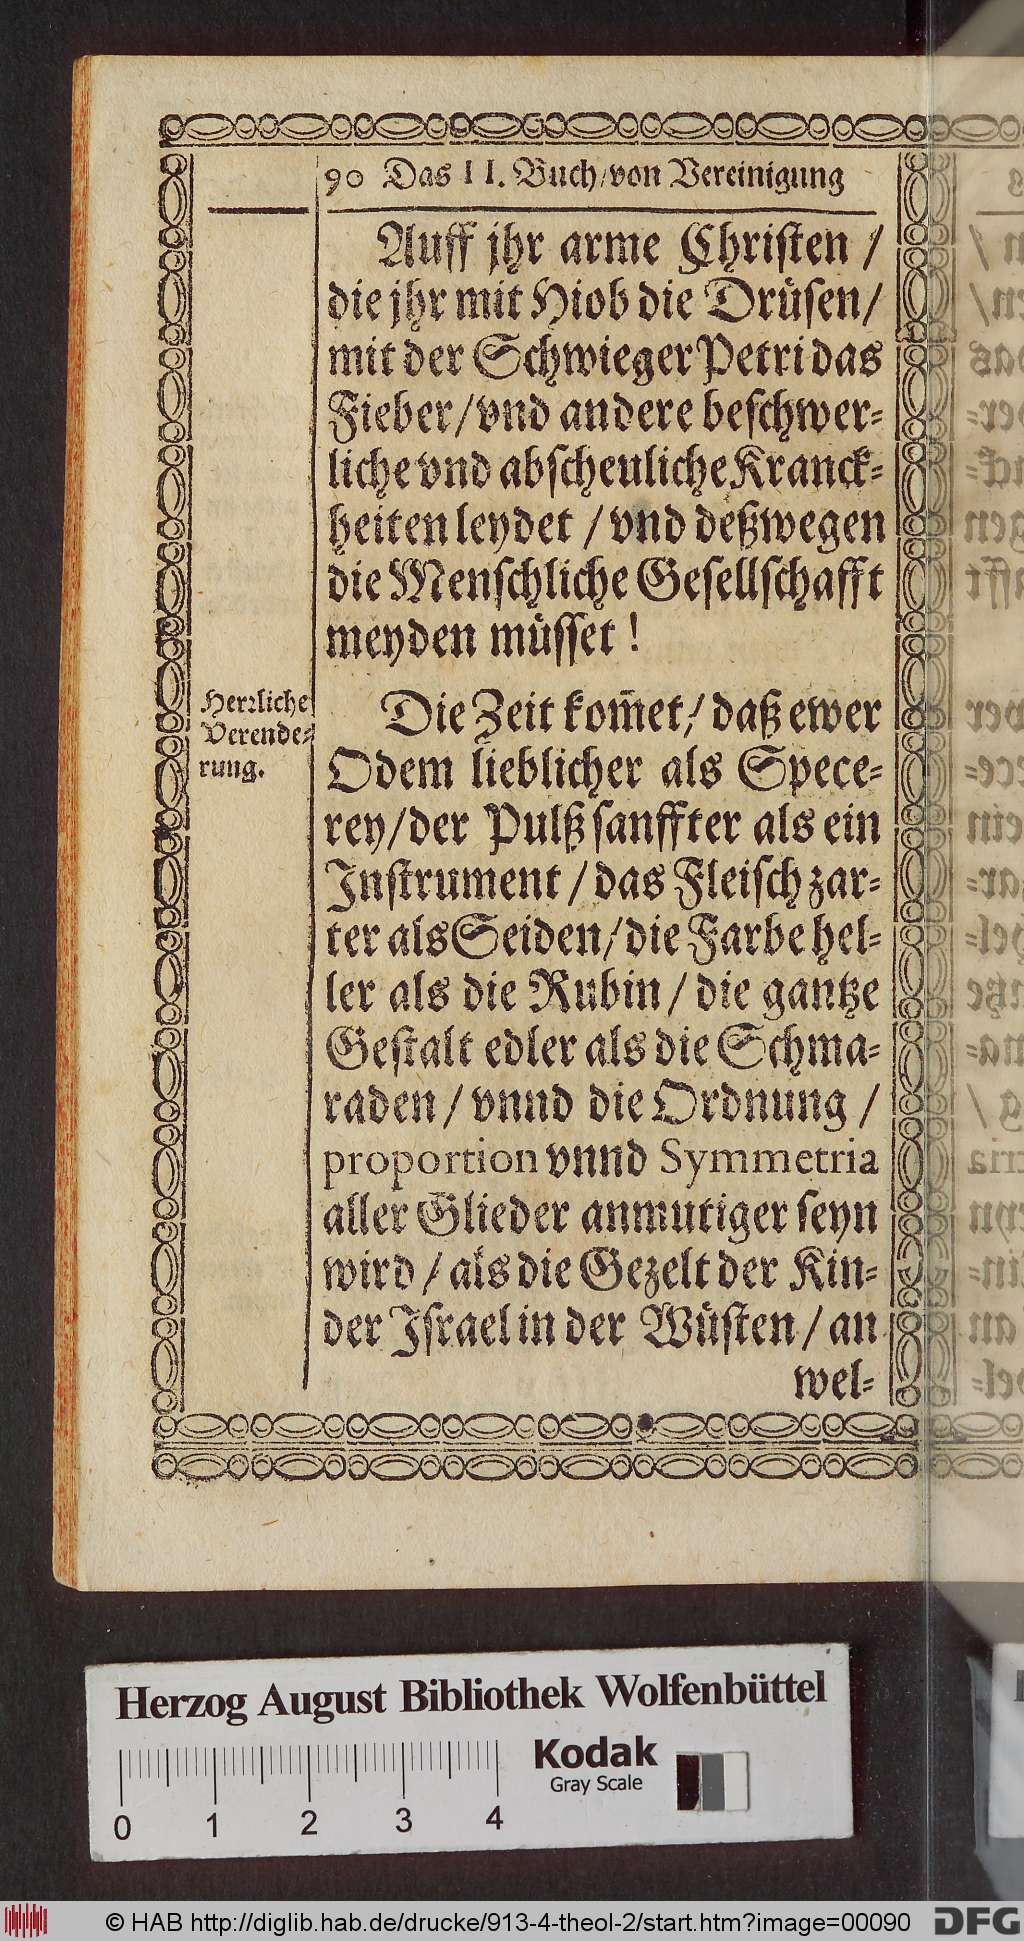 90 Das II. Buch/von Vereinigung
Auff jhr arme Christen /
die jhr mit Hiob die Drüsen/
mit der Schwieger Petri das
Fieber/vnd andere beschwer-
liche vnd abscheuliche Kranck-
heiten leydet / vnd deßwegen
die Menschliche Gesellschafft
meyden müsset !
Herrliche
Verende-
rung.
Die Zeit kom̃et/ daß ewer
Odem lieblicher als Spece-
rey/der Pulß sanffter als ein
Instrument / das Fleisch zar-
ter als Seiden/die Farbe hel-
ler als die Rubin / die gantze
Gestalt edler als die Schma-
raden / vnnd die Ordnung /
proportion vnnd Symmetria
aller Glieder anmutiger seyn
wird / als die Gezelt der Kin-
der Israel in der Wüsten / an
wel-
Herzog August Bibliothek Wolfenbüttel
Kodak
Gray Scale
0 1 2 3 4
© HAB http://diglib.hab.de/drucke/913-4-theol-2/start.htm?image=00090
DFG